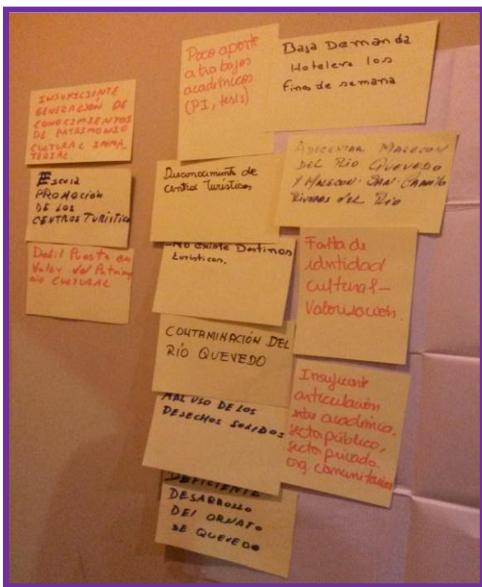 INSUFICIENTE
GENERACIÓN DE
CONOCIMIENTOS
DE PATRIMONIO
CULTURAL INMA
TERIAL.
Escasa
PROMOCIÓN
DE LOS
CENTROS TURÍSTICO
Debil Puesta en
Valor del Patrimo
nio CULTURAL
Poco aporte
a trabajos
académicos
(PI, tesis)
Desconocimiento de
centros Turísticos
No existe Destinos
turísticos.
CONTAMINACIÓN DEL
RÍO QUEVEDO
MAL USO DE LOS
DESECHOS SOLIDOS
DEFICIENTE
DESARROLLO
DEL ORNATO
DE QUEVEDO
Baja Demanda
Hotelera los
fines de semana
MALECON
DEL RÍO QUEVEDO
Y MALECON SAN CAMILO
RIVERAS DEL RÍO
Falta de
identidad
cultural -
Valorización.
Insuficiente
articulación
entre académico,
sector público,
sector privado
org comunitarias